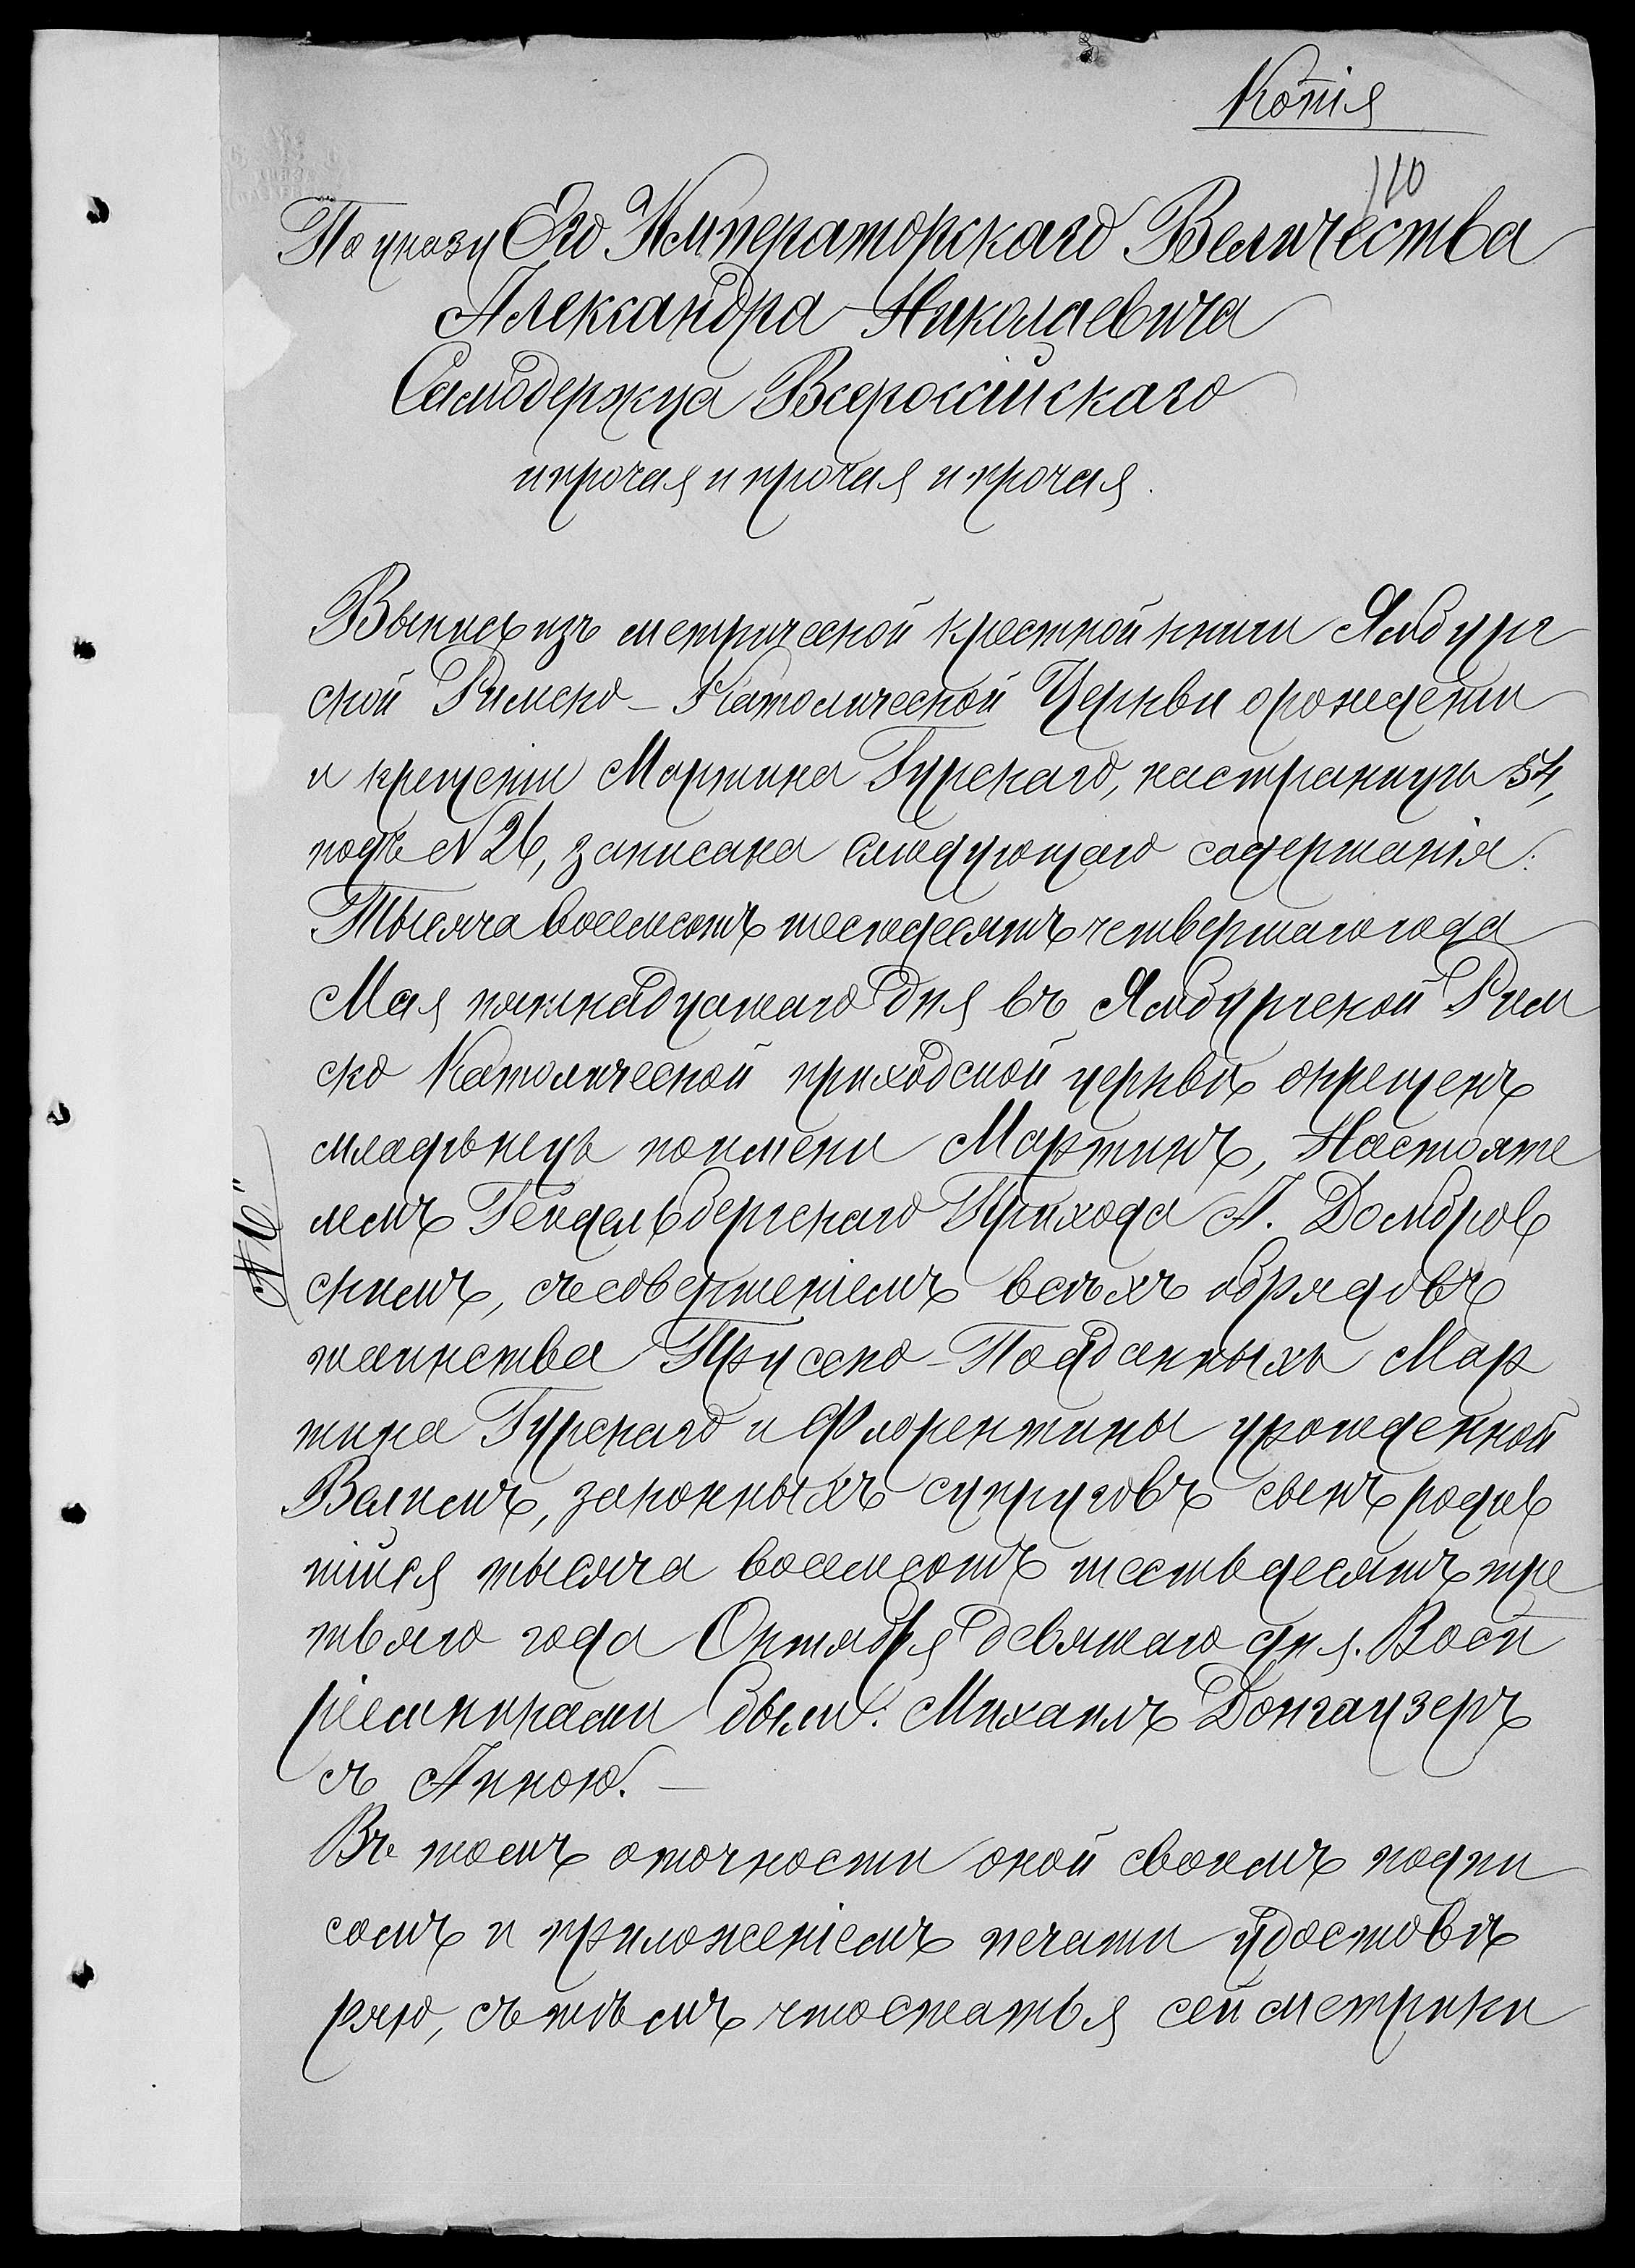 Копія
110
По указу Его Императорскаго Величества
Александра Николаевича
Самодержца Всероссійскаго
и прочая и прочая и прочая.
Выпись изъ метрической крестной книги Ямбург
ской Римско-Католической Церкви о рождении
и крещении Мартина Гурскаго, на странице 54,
подъ N 26, записана следующаго содержанія:
Тысяча восемсотъ шестдесятъ четвертаго года
Мая пятнадцатаго дня въ Ямбургской Рим
ско Католической приходской церкви окрещенъ
младенецъ по имени Мартинъ, Настояте
лемъ Гейдельбергскаго Прихода А. Домбров
скимъ, съ совершеніемъ всѣхъ обрядовъ
таинства Прусско-Подданныхъ Мар
тина Гурскаго и Флорентины урожденной
законныхъ супруговъ сынъ родив
шійся тысяча восемсотъ шестьдесятъ тре
тьяго года Октября девятаго дня. Восп
ріемниками были: Михаилъ Донгаузеръ
съ Анною. —
Въ томъ о точности оной своимъ подпи
сомъ и приложеніемъ печати удостовѣ
ряю, съ тѣмъ что статья сей метрики
N 6"